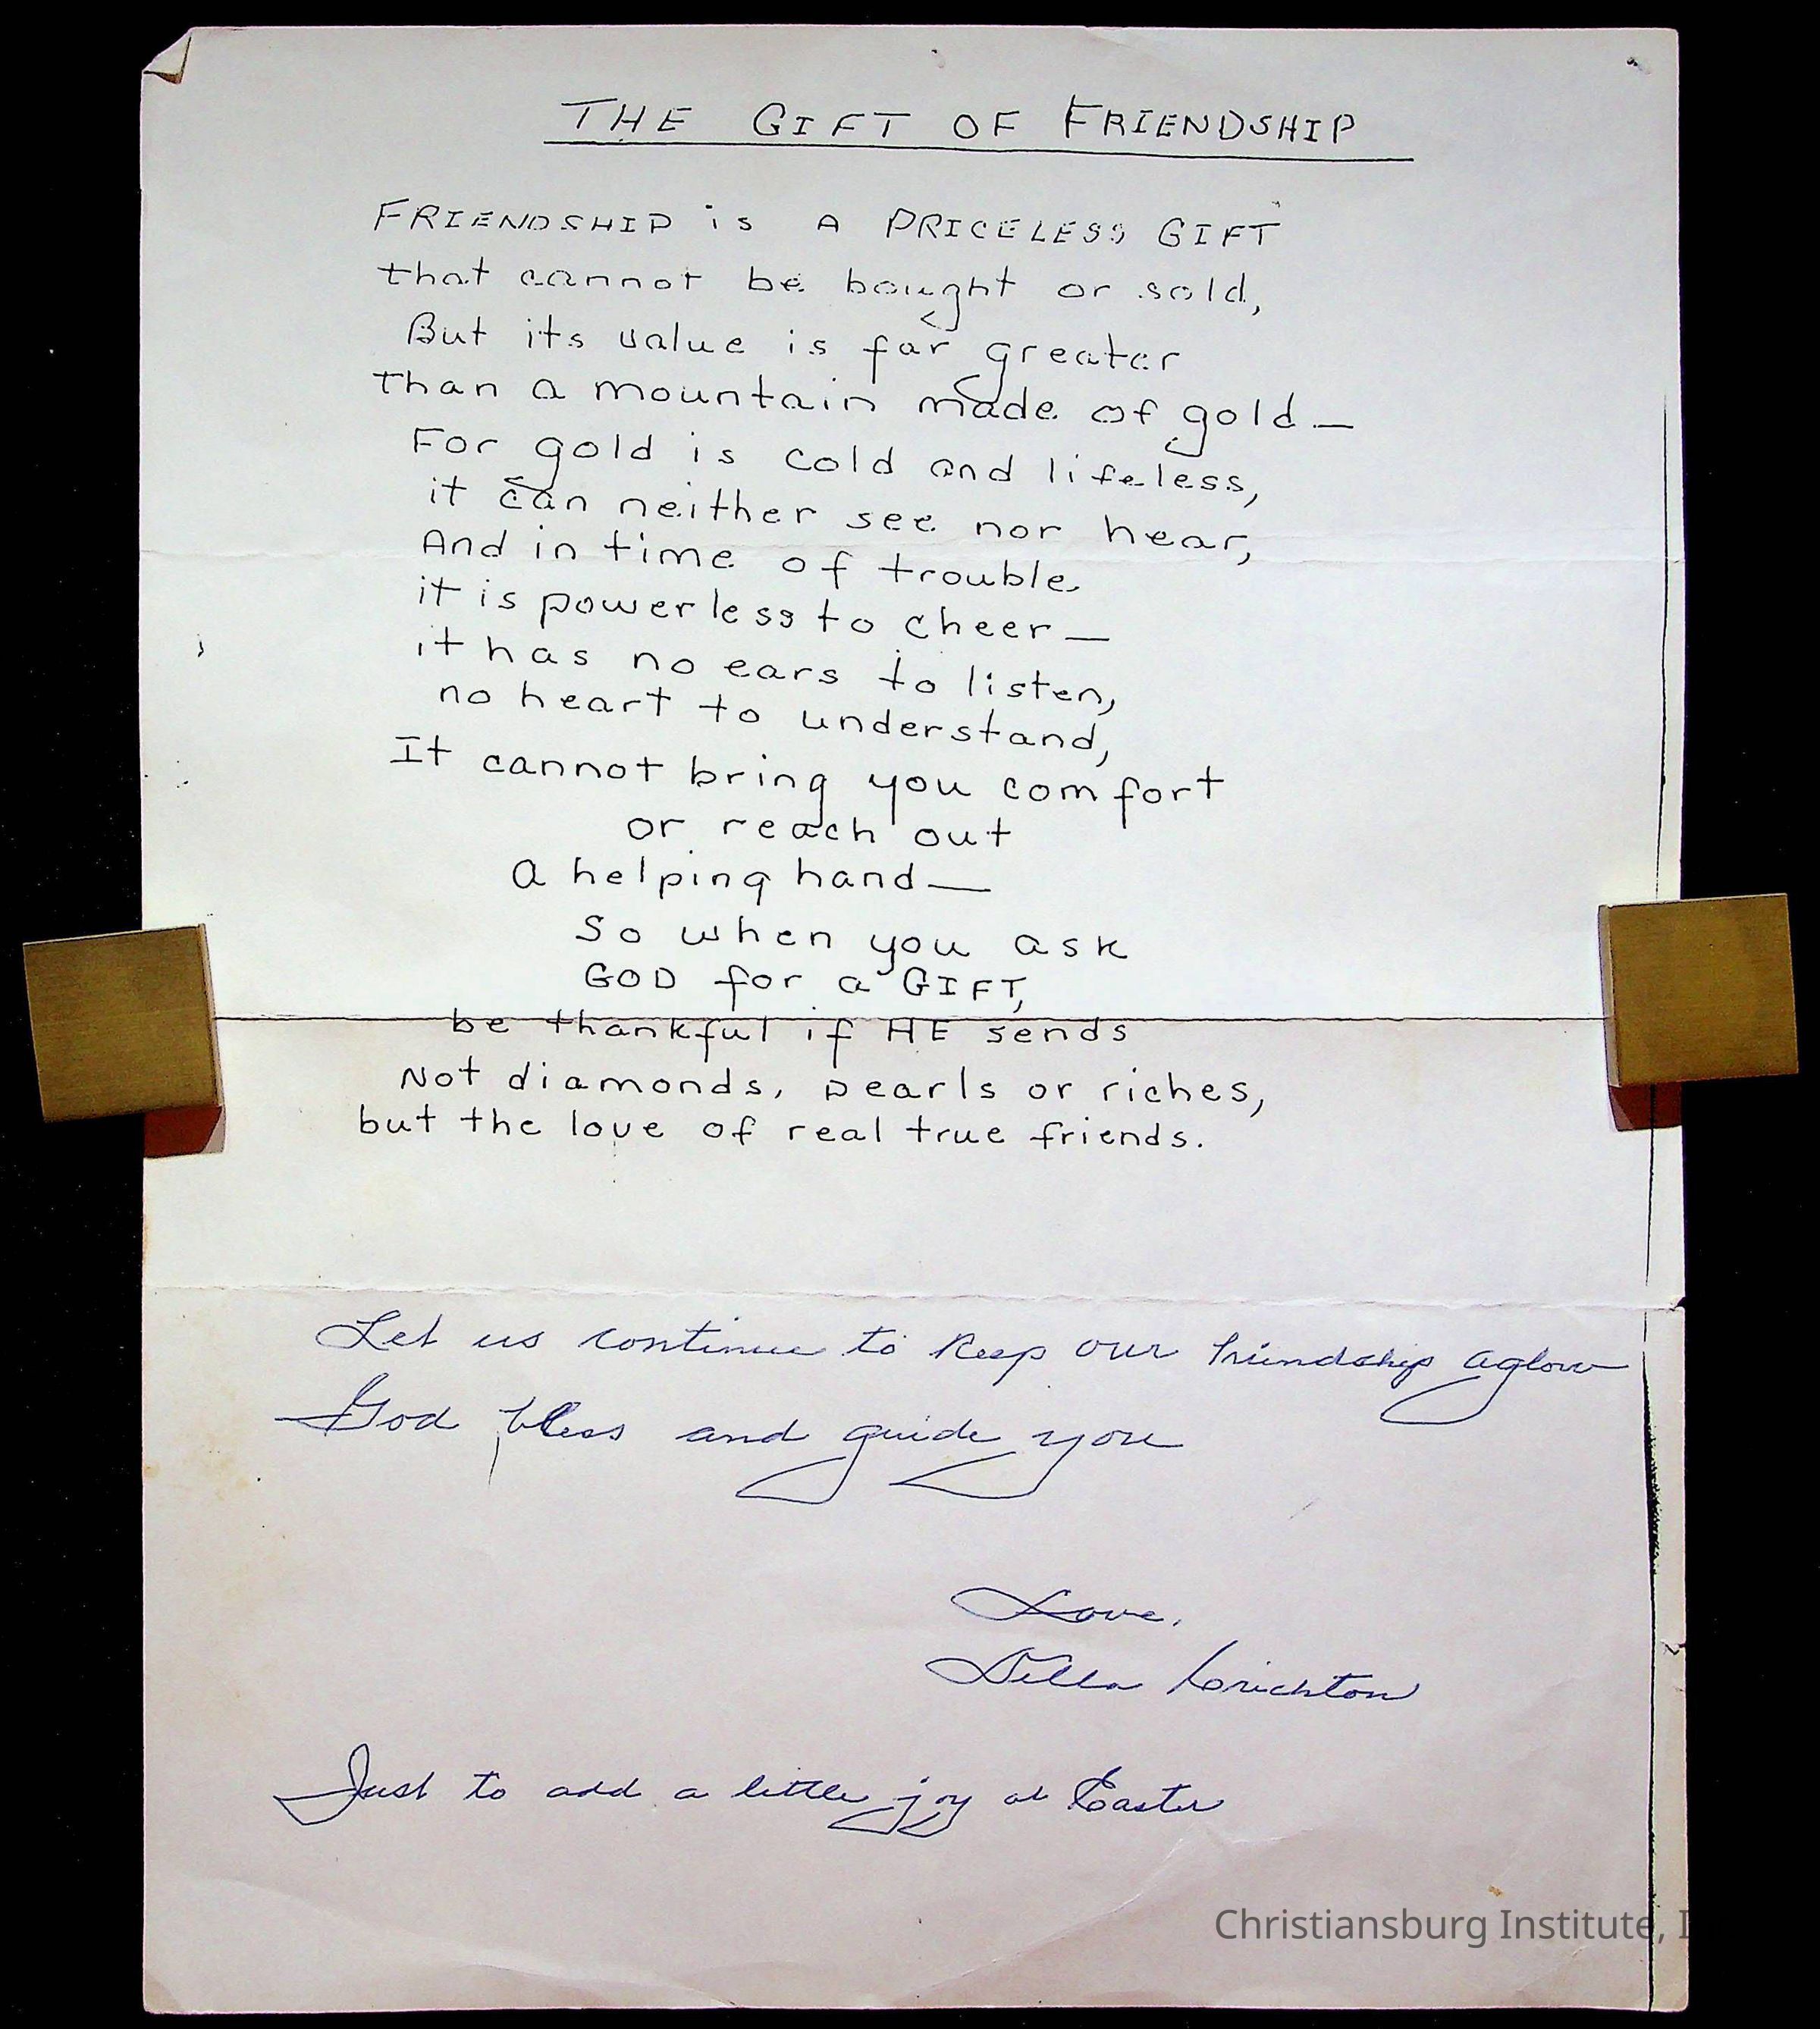 THE GIFT OF FRIENDSHIP
FRIENDSHIP is A PRICELESS GIFT
that cannot be bought or sold,
But its value is far greater
than a mountain made of gold—
For gold is cold and lifeless,
it can neither see nor hear,
And in time of trouble
it is powerless to cheer—
it has no ears to listen,
no heart to understand,
It cannot bring you comfort
or reach out
a helping hand—
So when you ask
GOD for a GIFT,
be thankful if HE sends
Not diamonds, pearls or riches,
but the love of real true friends.
Let us continue to keep our friendship aglow
God bless and guide you
Love,
Della Crichton
Just to add a little joy at Easter
Christiansburg Institute, I